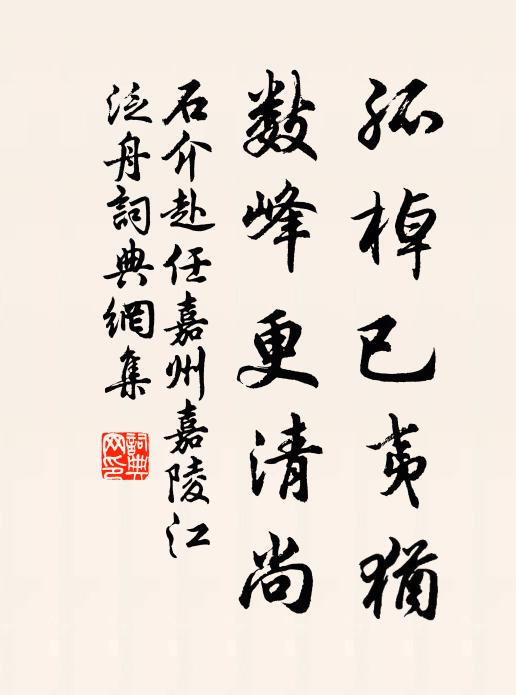 孤棹已夷猶
數峰更清尚
石介赴任嘉州嘉陵江
泛舟詞典網集
詞典網印